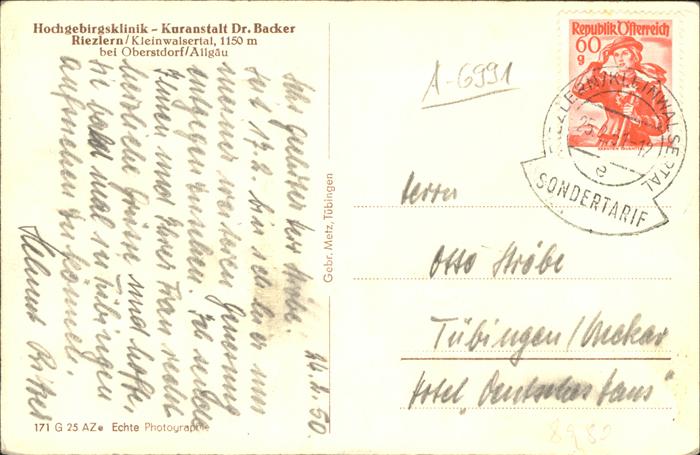 Hochgebirgsklinik – Kuranstalt Dr. Backer
Riezlern/Kleinwalsertal, 1150 m
bei Oberstdorf/Allgäu
24.2.50.
Sehr geehrter Herr Ströbe.
Seit 17.2. bin ich hier um
meiner weiteren Genesung
entgegen zu sehen. Ich sende
Ihnen und Ihrer Frau recht
herzliche Grüße und hoffe,
sie bald mal in Tübingen
aufsuchen zu können.
Helmut
171 G 25 AZe Echte Photographie
Gebr. Metz, Tübingen
A-6991
Republik Österreich
60
g
RIEZLERN/KLEINWALSERTAL
e
SONDERTARIF
Herrn
Otto Ströbe
Tübingen/Neckar
Hotel „Deutsches Haus"
8980